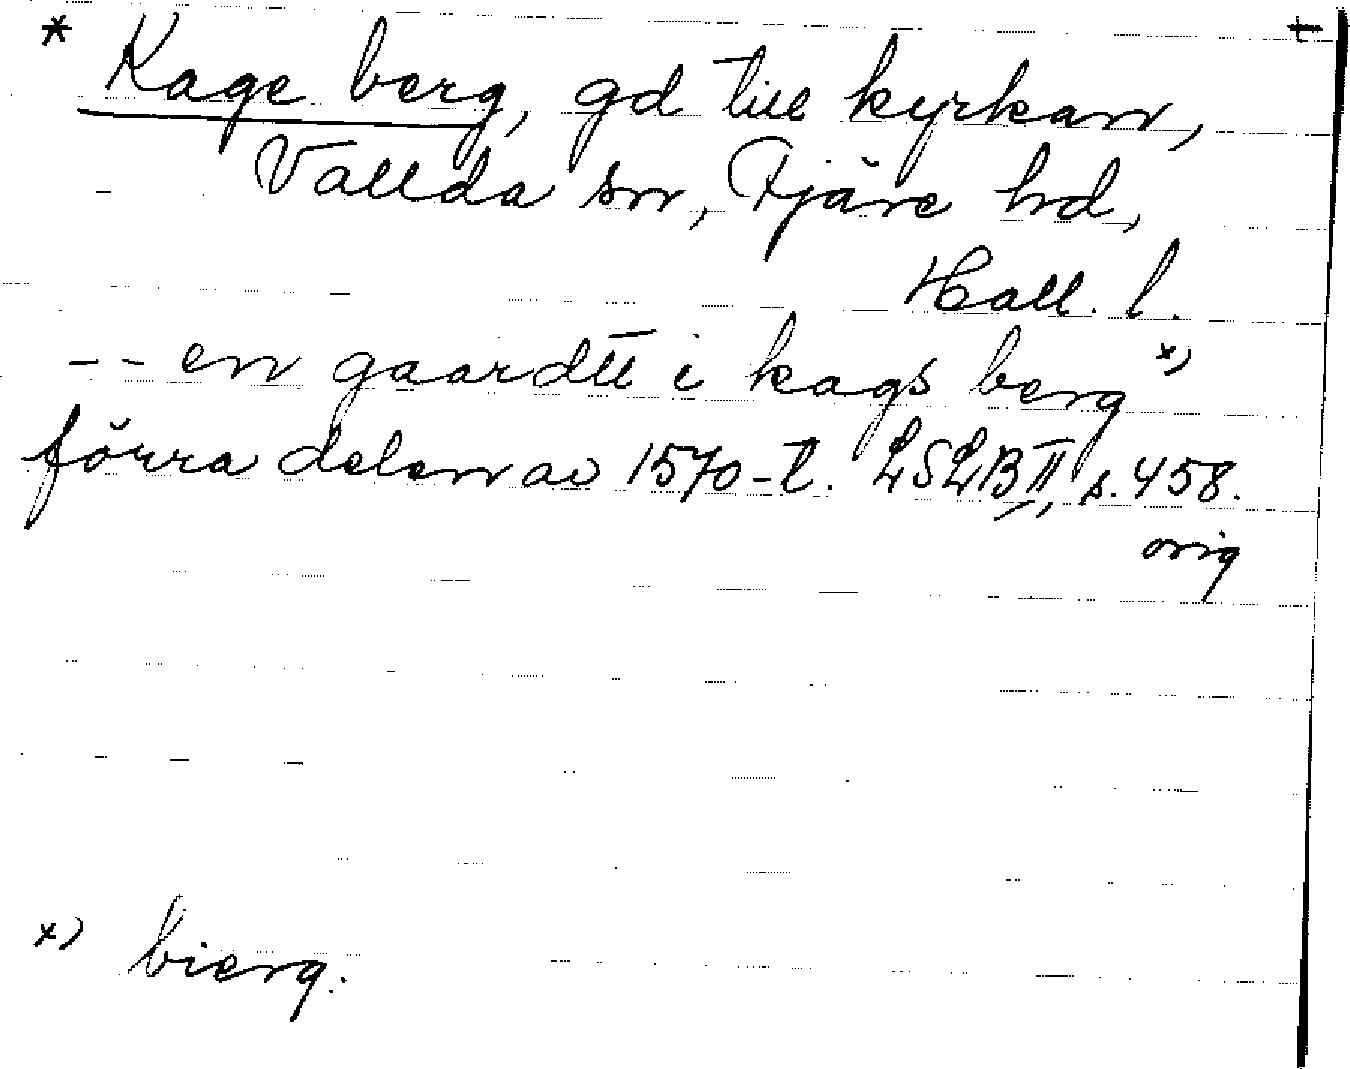 * Kage berg, gd till kyrkan, †
Vallda sn, Fjäre hd,
Hall. l.
-- en gaardtt i kags berg x)
förra delen av 1570-t. LSLB II, s. 458.
orig
x) bierg.